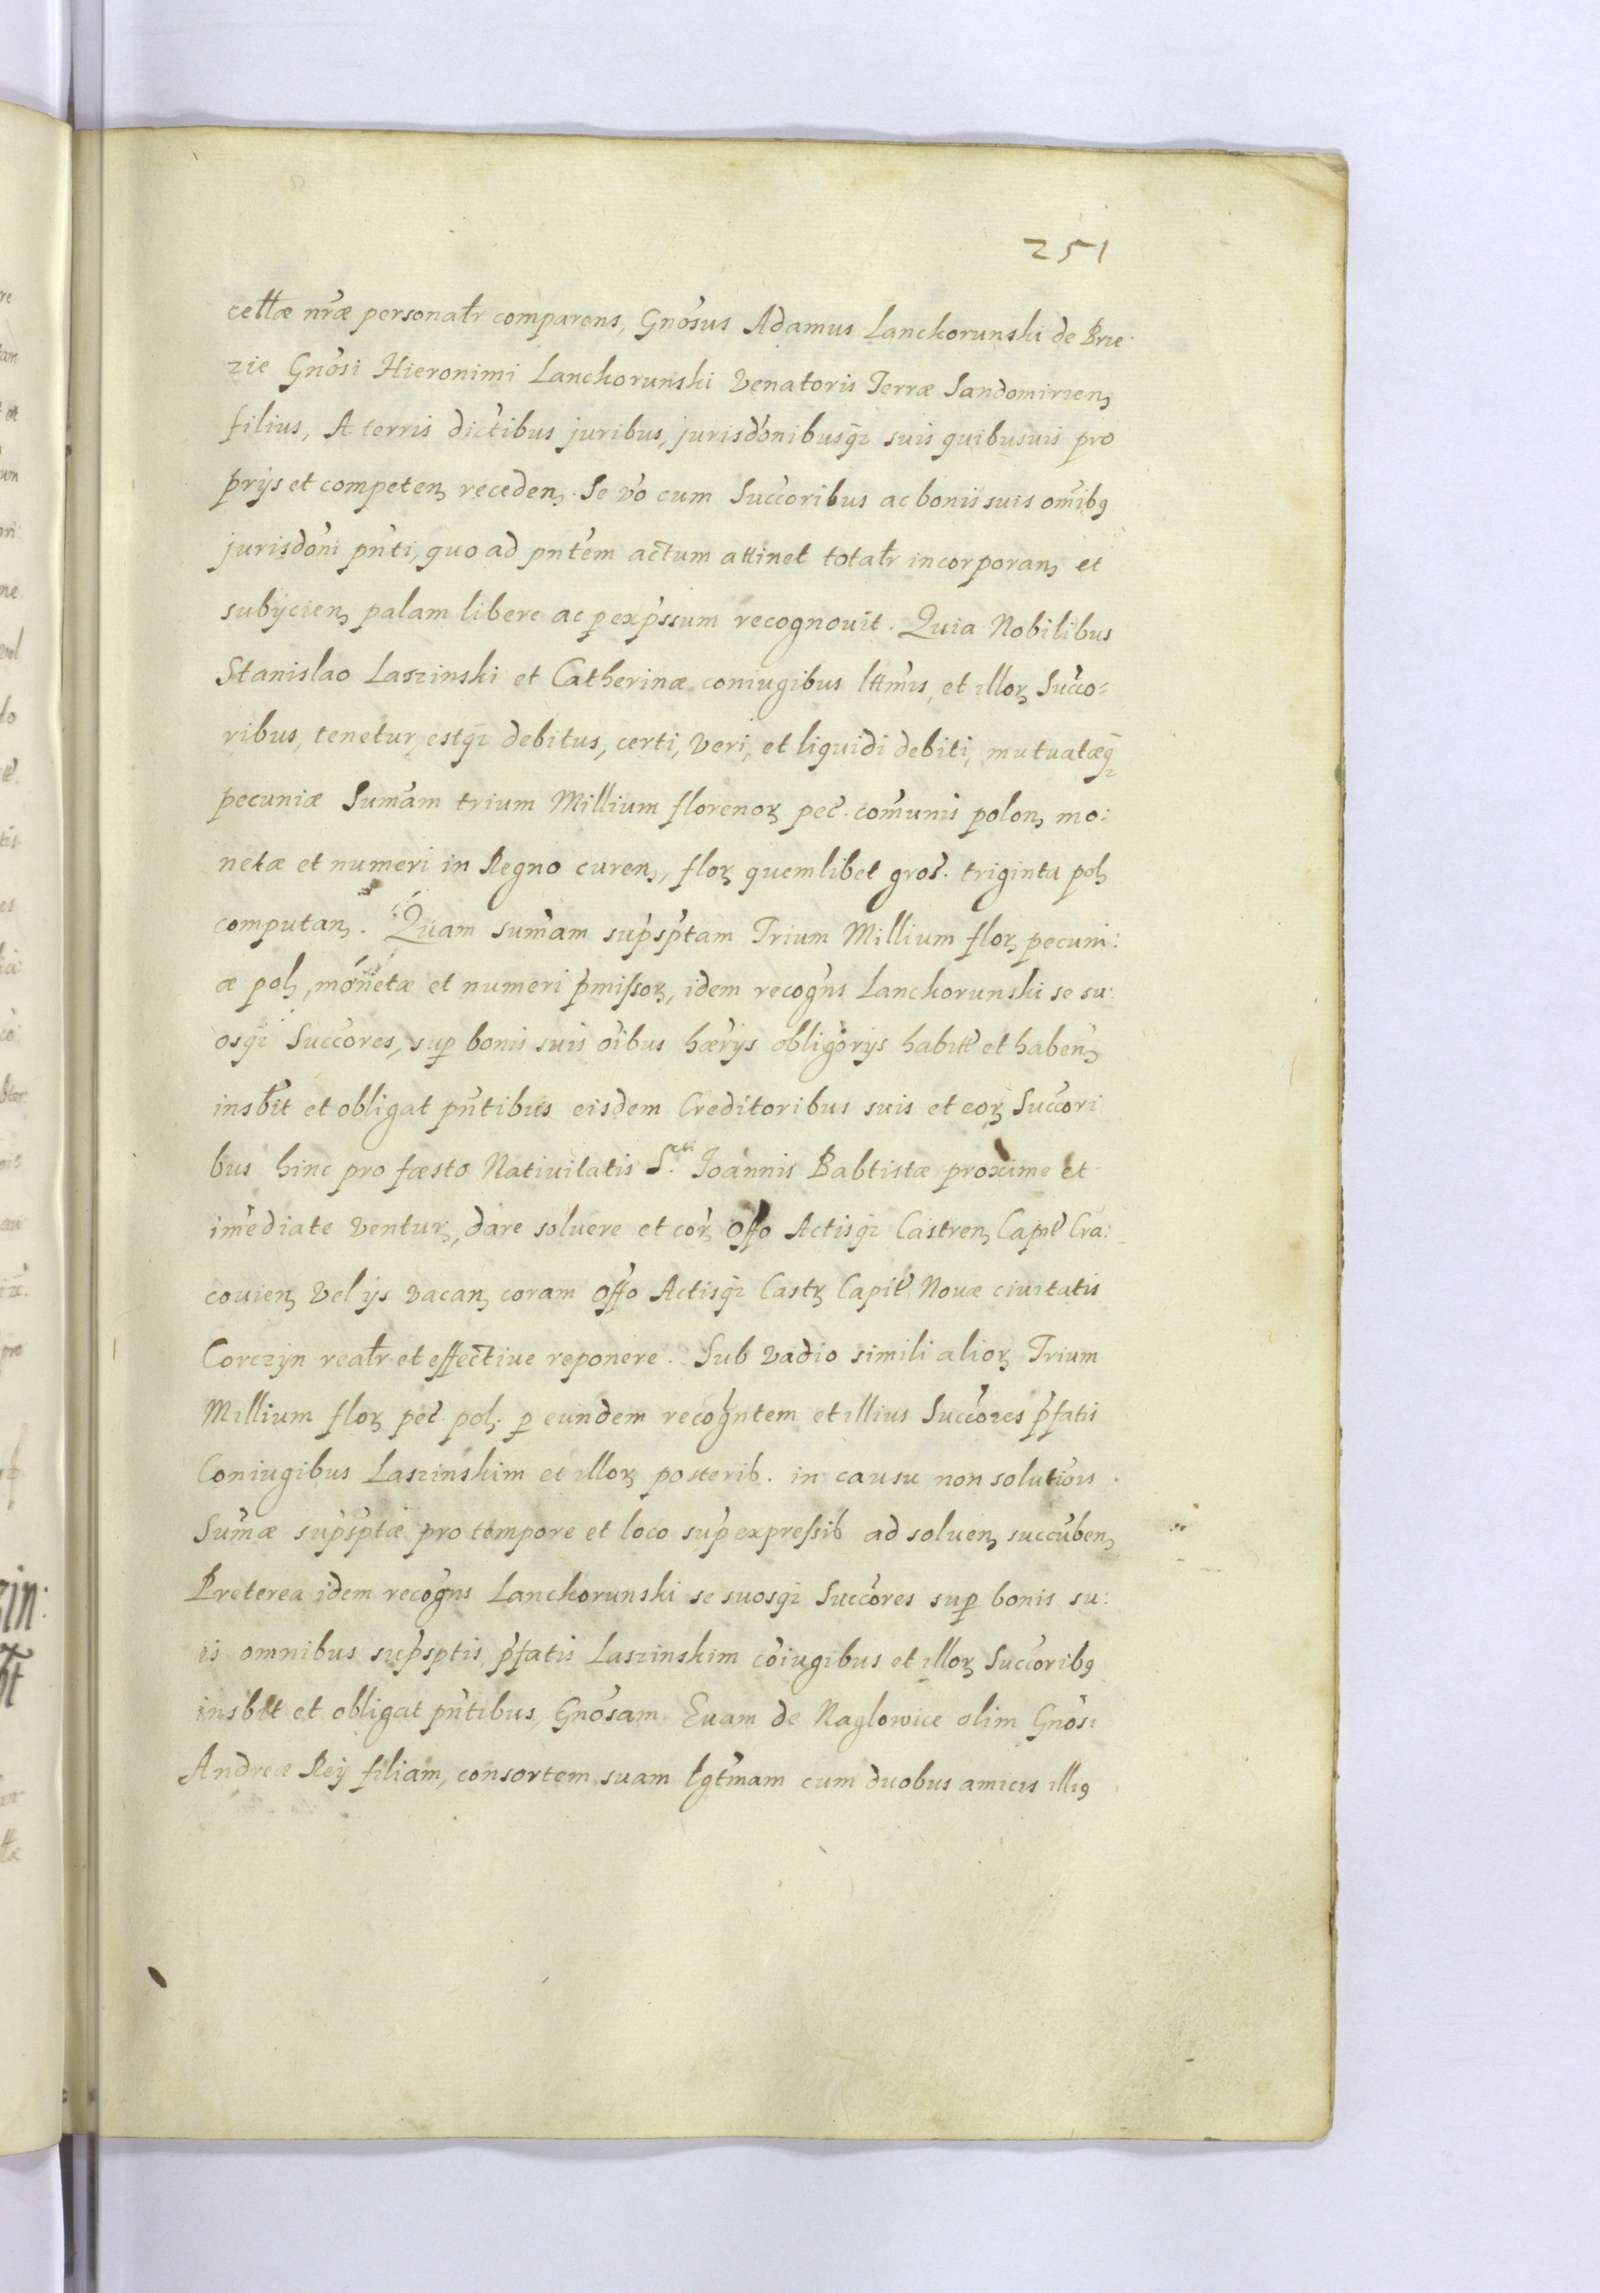 251
cellæ nr̃æ personalr̃ comparens, Gnõsus Adamus Lanckorunski de Brze
zie Gnõsi Hieronimi Lanckorunski Venatoris Terræ Sandomirien̨
filius, A terris dictibus juribus, jurisdõnibusq̃ suis quibusuis pro
prijs et competen̨ receden̨. Se võ cum Succ̃oribus ac bonis suis om̃ibꝰ
jurisdõni pñti, quo ad pñtem actum attinet totalr̃ incorporan̨ et
subijcien̨ palam libere ac ꝑ exp̃ssum recognouit. Quia Nobilibus
Stanislao Laszinski et Catherinæ coniugibus lttm̃is, et illoꝝ Succ̃o=
ribus, tenetur, estq̃ debitus, certi, veri, et liquidi debiti, mutuatæq̃
pecuniæ Sum̃am trium Millium florenoꝝ pec̃. com̃unis polon̨ mo:
netæ et numeri in Regno curen̨, floꝝ quemlibet gros̃. triginta pol̨
computan̨. Quam sum̃am sup̃sp̃tam Trium Millium floꝝ pecuni:
æ pol̨, monetæ et numeri p̃missoꝝ, idem recogñs Lanckorunski se su:
osq̃ Succ̃ores, suꝑ bonis suis õibus hær̃ijs obligõrijs habitt̃ et haben̨
insb̃it et obligat pñtibus eisdem Creditoribus suis et eoꝝ Succ̃ori
bus hinc pro fæsto Natiuitatis S.cti Joannis Babtistæ proxime et
im̃ediate venturꝝ, dare soluere et cor̃ Offo Actisq̃ Castren̨ Capit̃ Cra:
couien̨ vel ijs vacan̨ coram Offo Actisq̃ Castꝝ Capit̃ Nouæ ciuitatis
Corczyn realr̃ et effectiue reponere. Sub vadio simili alioꝝ Trium
Millium floꝝ pec̃. pol̨. ꝑ eundem recogñtem et illius Succ̃ores p̃fatis
Coniugibus Laszinskim et illoꝝ posterib. in causu non solutiõis
Sum̃æ sup̃sp̃tæ pro tempore et loco sup̃ expressib ad soluen̨ succũben̨
Preterea idem recogñs Lanckorunski se suosq̃ Succ̃ores suꝑ bonis su:
is omnibus sup̃sptis, p̃fatis Laszinskim cõiugibus et illoꝝ Succ̃oribꝰ
insb̃it et obligat pñtibus, Gnõsam Euam de Naglowice olim Gnõsi
Andreæ Reÿ filiam, consortem suam lgt̃mam cum duobus amicis illiꝰ